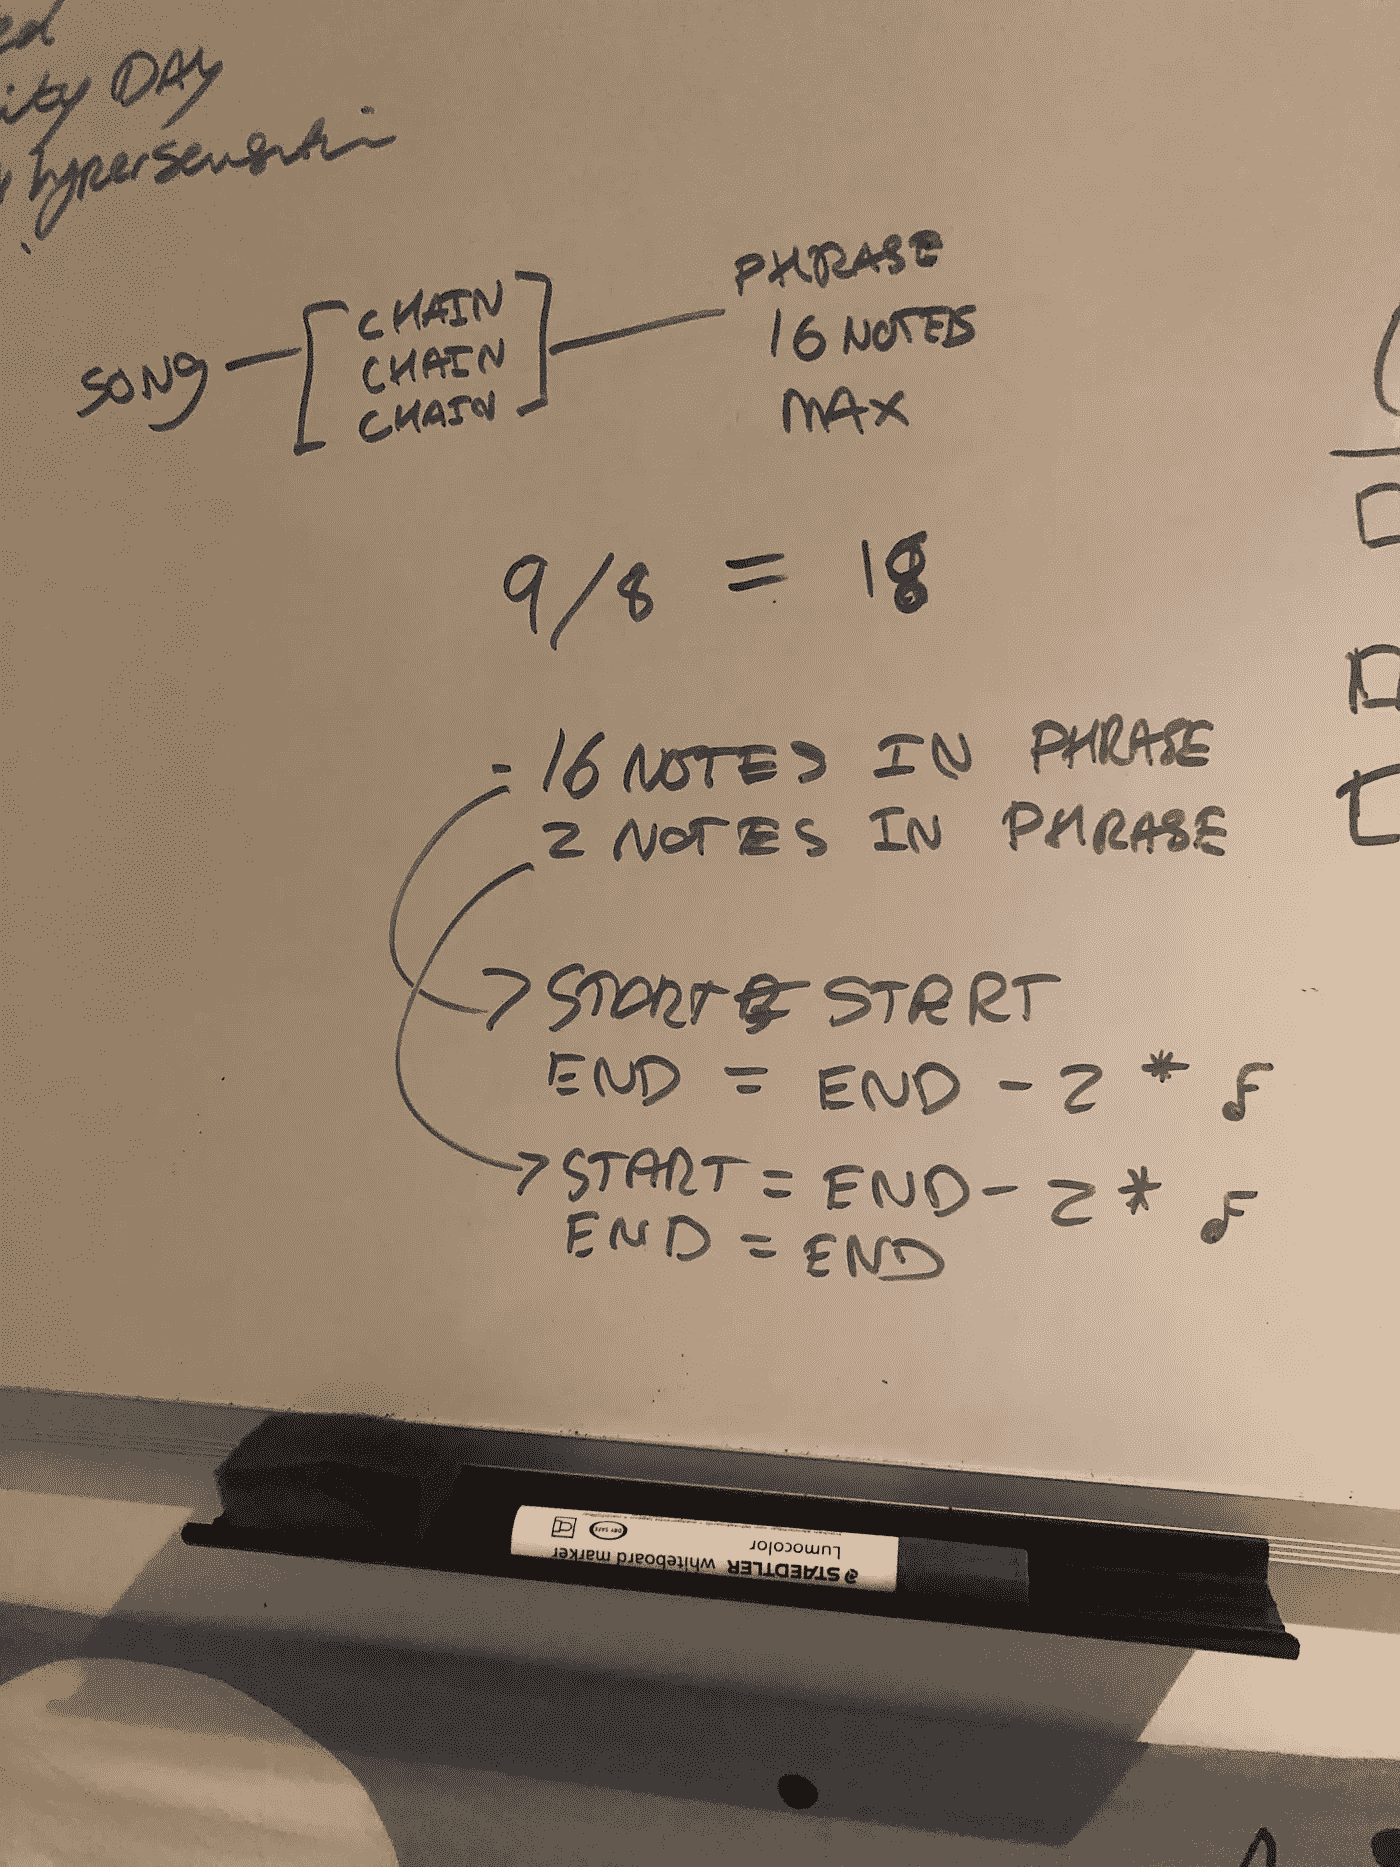 ed
ity DAY
SONG
CHAIN
CHAIN
CHAIN
PHRASE
16 NOTES
MAX
9/8 = 18
- 16 NOTES IN PHRASE
2 NOTES IN PHRASE
> START = START
END = END - 2 * ♪
> START = END - 2 * ♪
END = END
STAEDTLER whiteboard marker
Lumocolor
DRY SAFE